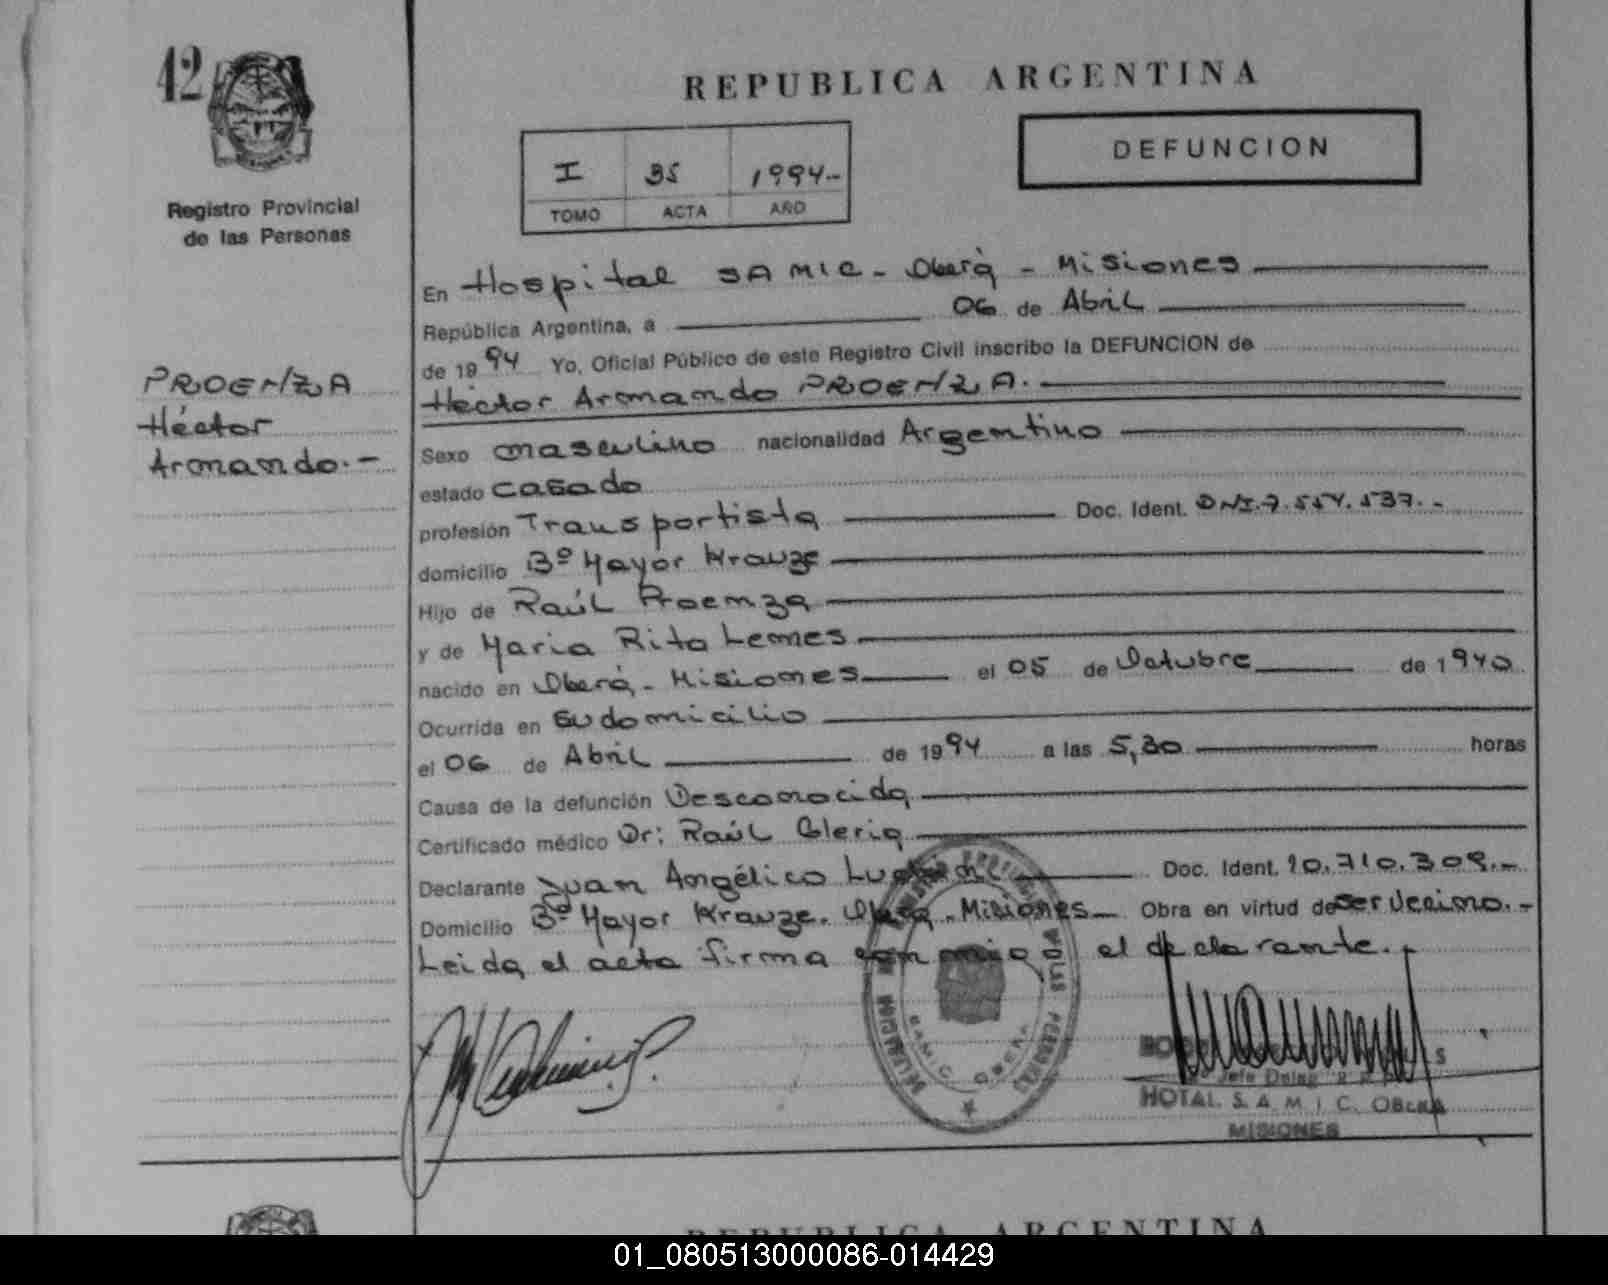 42
REPUBLICA ARGENTINA
DEFUNCION
I 35 1994.-
TOMO ACTA AÑO
Registro Provincial
de las Personas
PROENZA
Héctor
Armando.-
En Hospital SAMIC - Oberá - Misiones
República Argentina, a 06 de Abril
de 1994 Yo, Oficial Público de este Registro Civil inscribo la DEFUNCION de
Héctor Armando PROENZA.
Sexo masculino nacionalidad Argentino
estado casado
profesión Transportista Doc. Ident. DNI.7.554.537.-
domicilio Bº Mayor Krauze
Hijo de Raúl Proenza
y de Maria Rita Lemes
nacido en Oberá - Misiones el 05 de Octubre de 1940
Ocurrida en su domicilio
el 06 de Abril de 1994 a las 5,30 horas
Causa de la defunción Desconocida
Certificado médico Dr: Raúl Cleria
Declarante Juan Angélico Doc. Ident. 10.710.309.-
Domicilio Bº Mayor Krauze. Oberá - Misiones Obra en virtud de ser vecino.-
Leida el acta firma conmigo el declarante.-
SAMIC OBERA
HOTAL. S. A. M. I. C. OBERA
MISIONES
REPUBLICA ARGENTINA
01_080513000086-014429